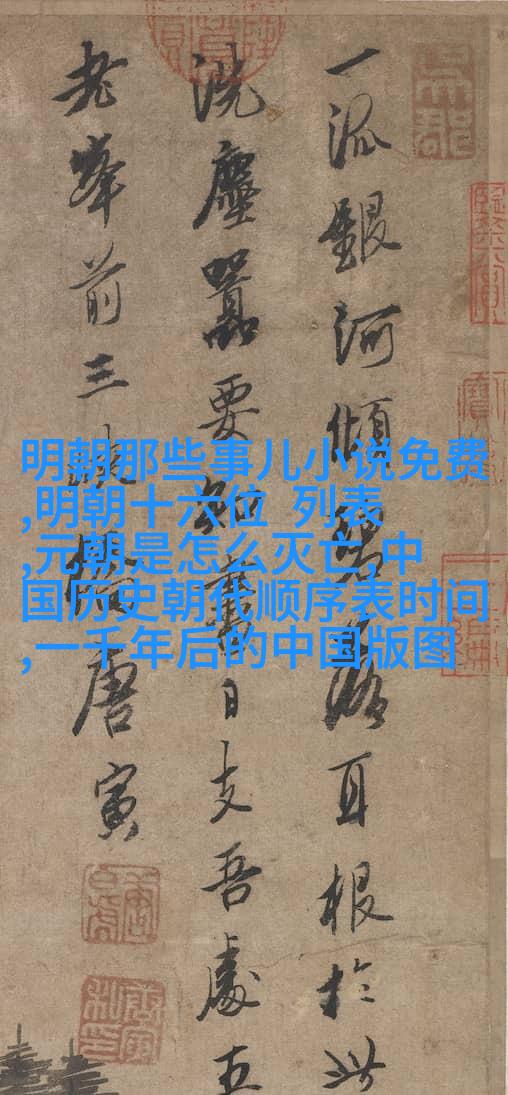 明朝那些事儿小说免费
,明朝十六位 列表
,元朝是怎么灭亡,中
国历史朝代顺序表时间
,一千年后的中国版图
一派銀河傾碧落耳根於此
洗塵囂要知盡日支吾處五
老峯前三峽橋唐寅